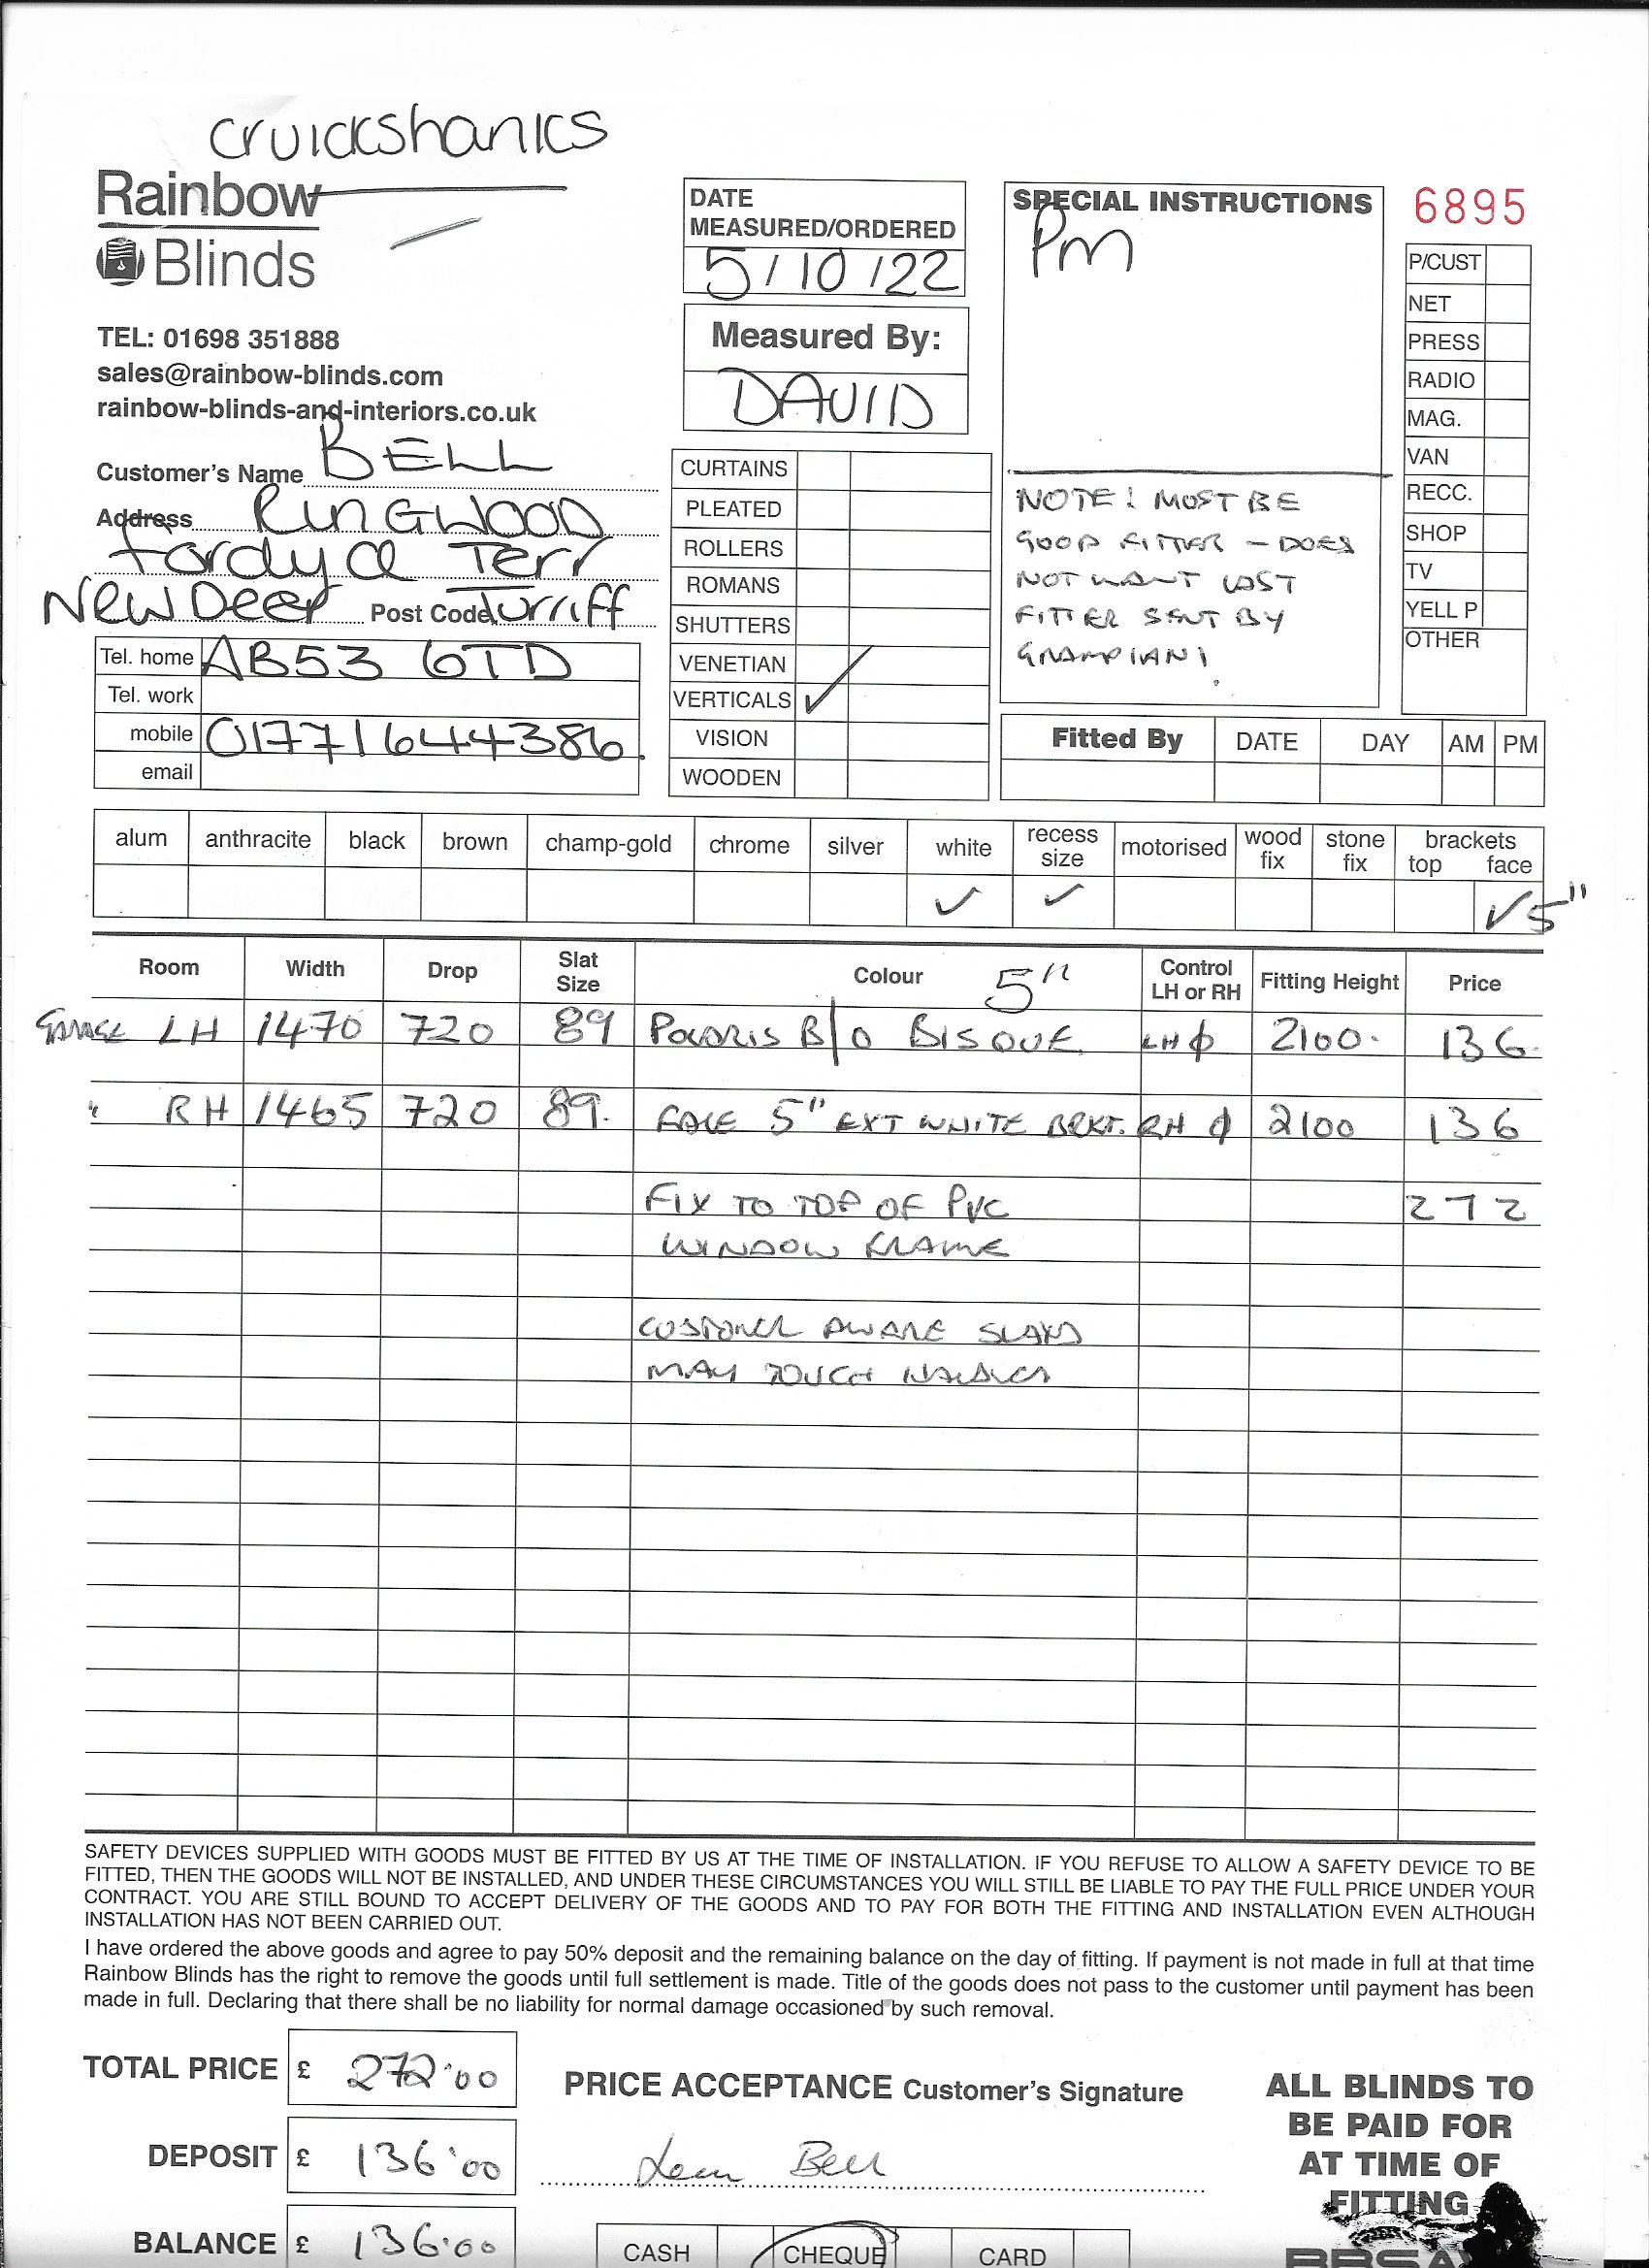 cruickshanks
Rainbow
Blinds
TEL: 01698 351888
sales@rainbow-blinds.com
rainbow-blinds-and-interiors.co.uk
Customer's Name BELL
Address RINGWOOD
Fordyce Terr
New Deer Post Code Turriff
Tel. home AB53 6TD
Tel. work
mobile 01771644386.
email
DATE
MEASURED/ORDERED
5/10/22
Measured By:
DAVID
CURTAINS
PLEATED
ROLLERS
ROMANS
SHUTTERS
VENETIAN
VERTICALS ✓
VISION
WOODEN
SPECIAL INSTRUCTIONS
Pm
NOTE! MUST BE
GOOD FITTER - DOES
NOT WANT LAST
FITTER SENT BY
GRAMPIAN!
6895
P/CUST
NET
PRESS
RADIO
MAG.
VAN
RECC.
SHOP
TV
YELL P
OTHER
Fitted By DATE DAY AM PM
alum anthracite black brown champ-gold chrome silver white recess size motorised wood fix stone fix brackets top face
✓ ✓ ✓ 5"
Room Width Drop Slat Size Colour 5" Control LH or RH Fitting Height Price
GARAGE LH 1470 720 89 POLARIS B/O BISQUE LH 2100. 136.
" RH 1465 720 89. FACE 5" EXT WHITE BRKT. RH 2100 136
FIX TO TOP OF PVC 272
WINDOW FRAME
CUSTOMER AWARE SLATS
MAY TOUCH HANDLES
SAFETY DEVICES SUPPLIED WITH GOODS MUST BE FITTED BY US AT THE TIME OF INSTALLATION. IF YOU REFUSE TO ALLOW A SAFETY DEVICE TO BE
FITTED, THEN THE GOODS WILL NOT BE INSTALLED, AND UNDER THESE CIRCUMSTANCES YOU WILL STILL BE LIABLE TO PAY THE FULL PRICE UNDER YOUR
CONTRACT. YOU ARE STILL BOUND TO ACCEPT DELIVERY OF THE GOODS AND TO PAY FOR BOTH THE FITTING AND INSTALLATION EVEN ALTHOUGH
INSTALLATION HAS NOT BEEN CARRIED OUT.
I have ordered the above goods and agree to pay 50% deposit and the remaining balance on the day of fitting. If payment is not made in full at that time
Rainbow Blinds has the right to remove the goods until full settlement is made. Title of the goods does not pass to the customer until payment has been
made in full. Declaring that there shall be no liability for normal damage occasioned by such removal.
TOTAL PRICE £ 272.00
DEPOSIT £ 136.00
BALANCE £ 136.00
PRICE ACCEPTANCE Customer's Signature
Bell
CASH CHEQUE CARD
ALL BLINDS TO
BE PAID FOR
AT TIME OF
FITTING